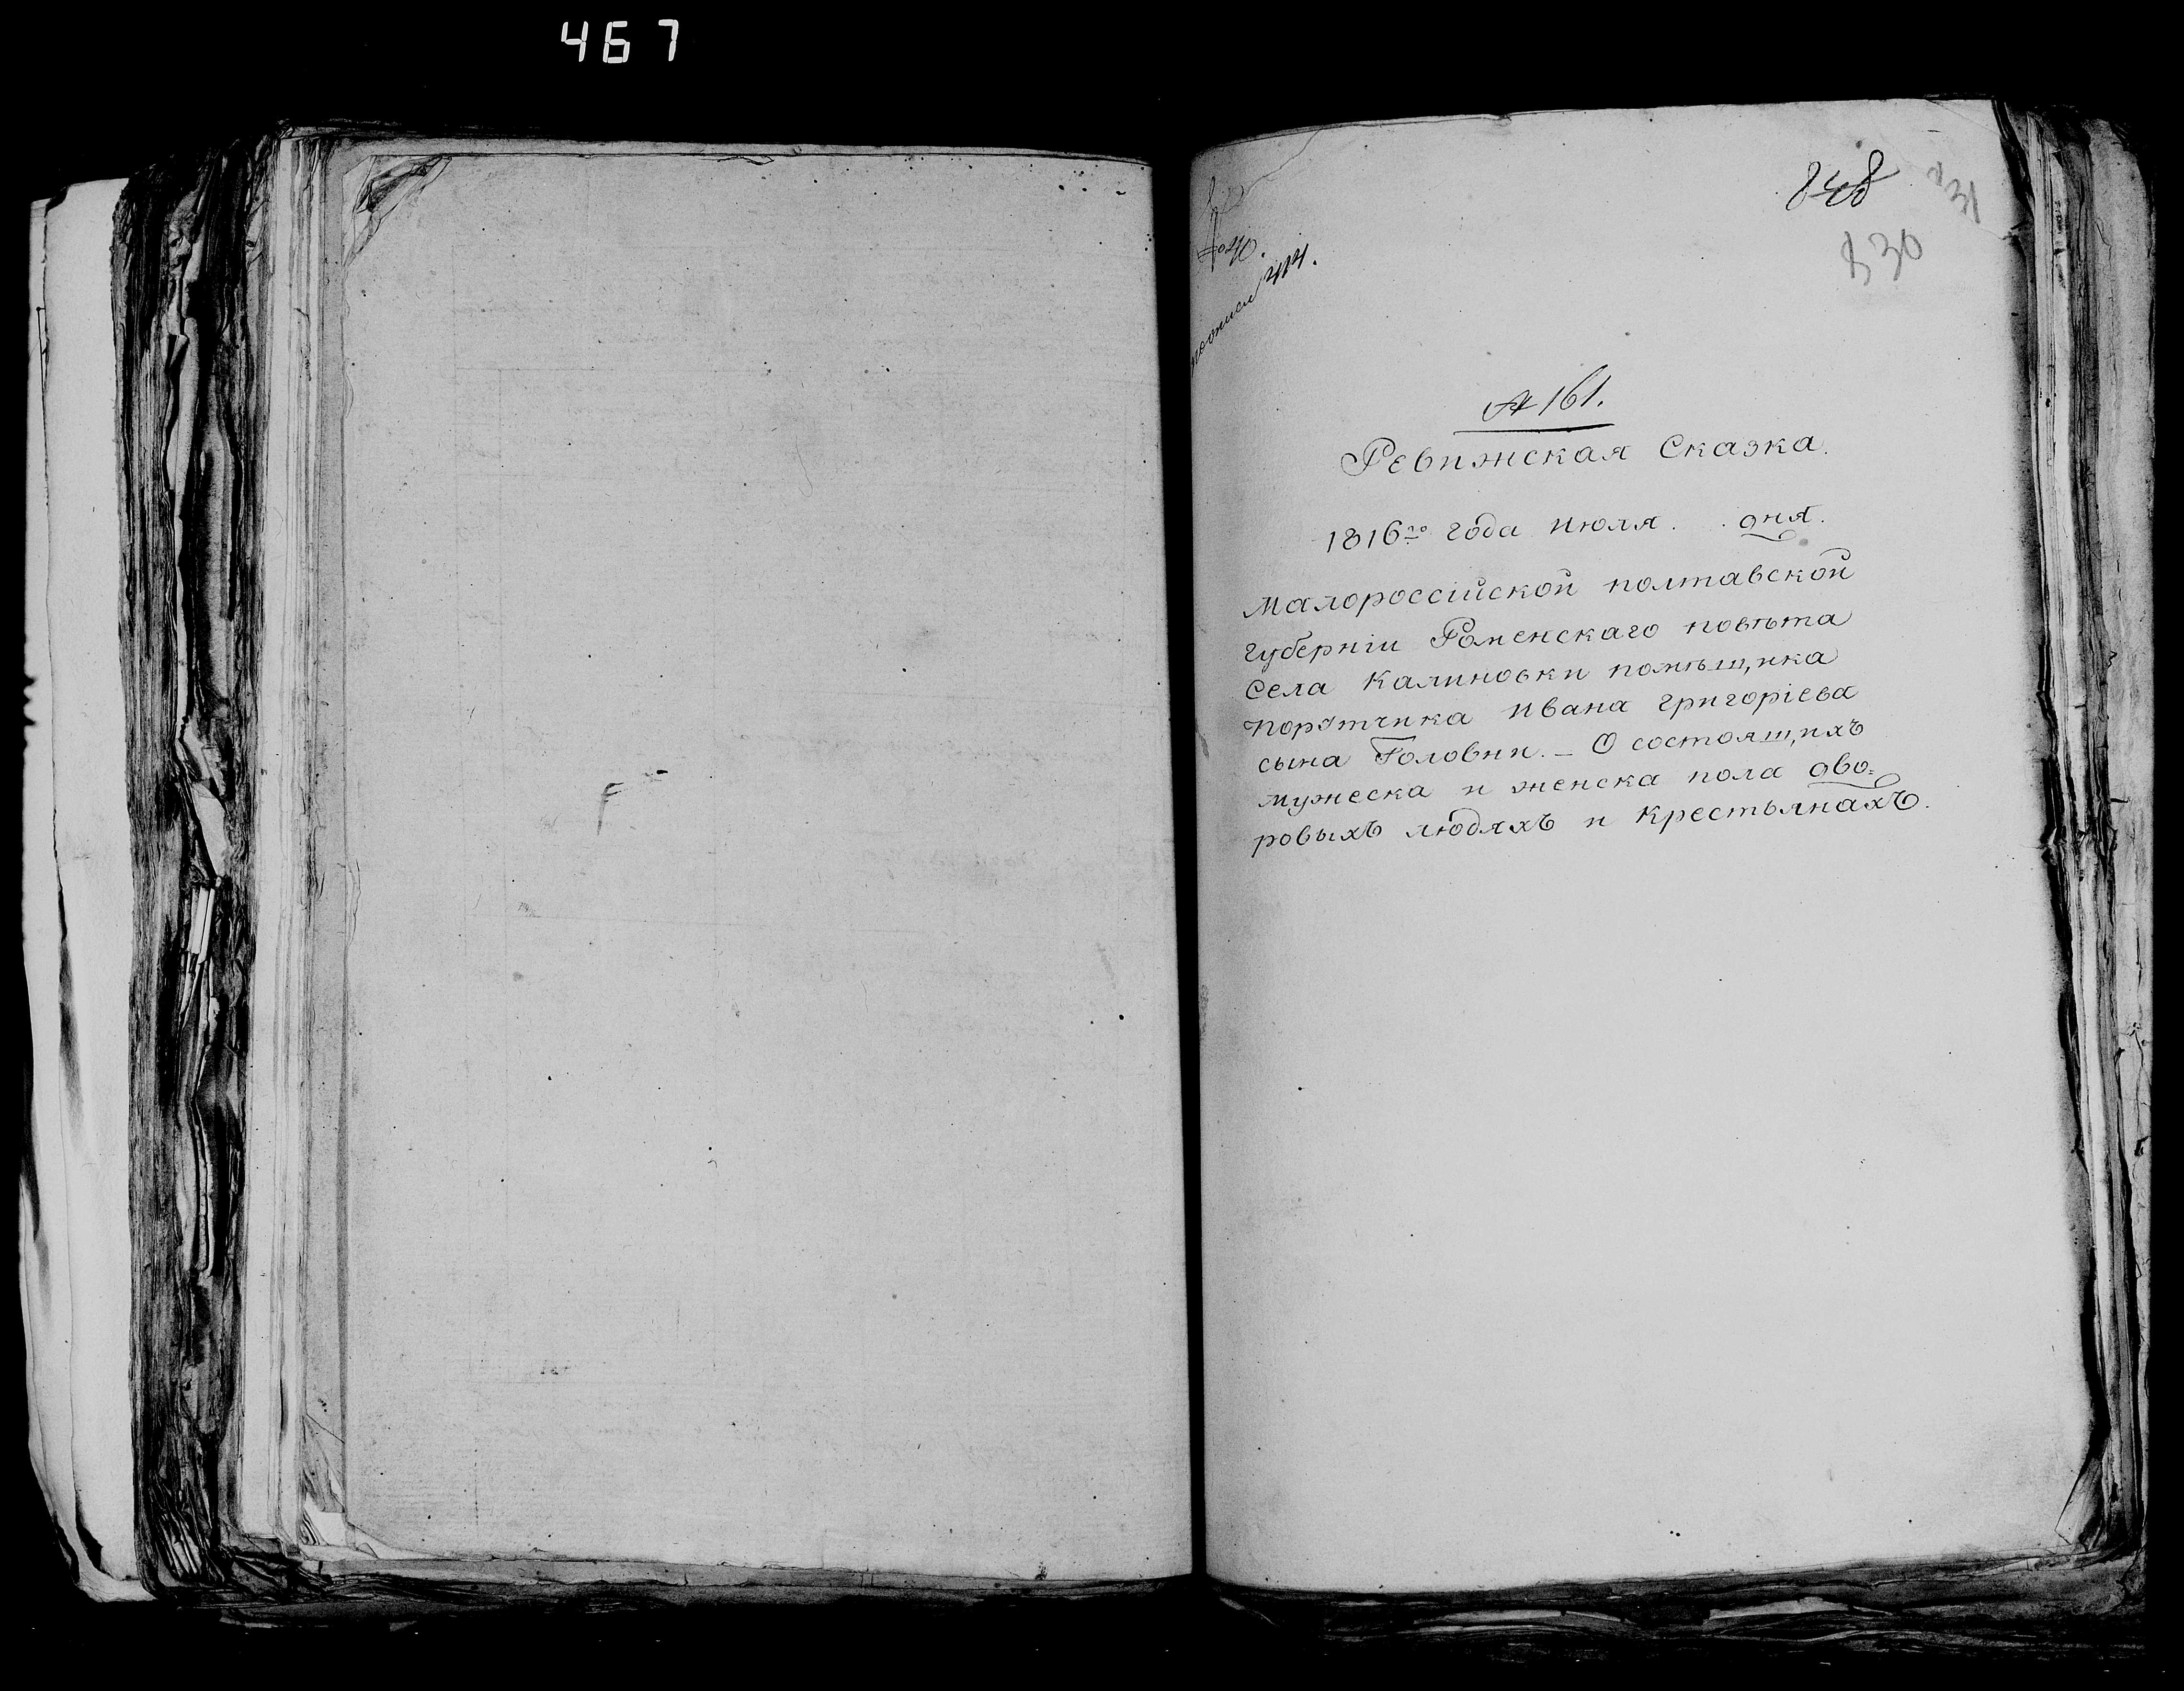 467
848
831
830
№ 40.
414.
№ 161.
Ревижская Сказка.
1816го года июля . . дня.
Малороссійской полтавской
губерніи Роменскаго повѣта
Села Калиновки помѣщика
порутчика Ивана григоріева
сына Головни. – О состоящихъ
мужеска и женска пола дво=
ровыхъ людяхъ и крестьянахъ.